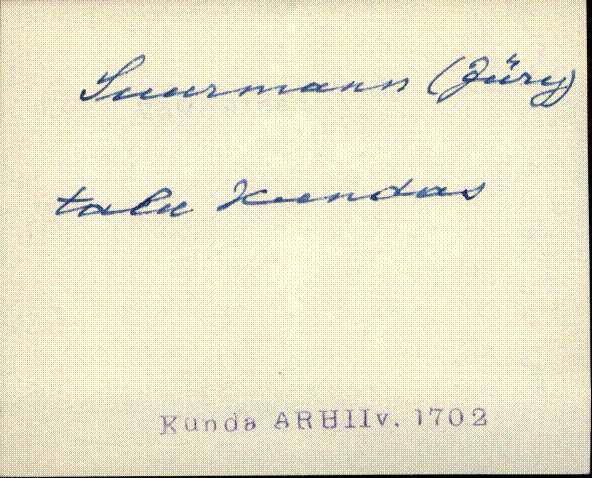 Suurmann (Jüry)
talu Kundas
Kunda ARHIIv. 1702